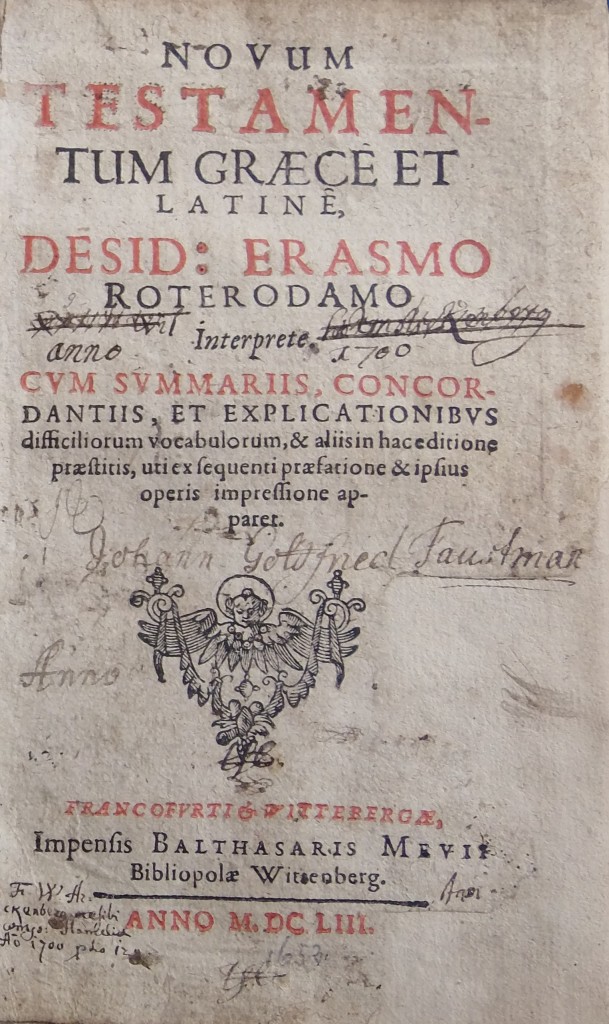 NOVUM
TESTAMEN-
TUM GRÆCÈ ET
LATINÈ,
DESID: ERASMO
ROTERODAMO
Interprete.
anno 1700
CVM SVMMARIIS, CONCOR-
DANTIIS, ET EXPLICATIONIBVS
difficiliorum vocabulorum, & aliis in hac editione
præstitis, uti ex sequenti præfatione & ipsius
operis impressione ap-
paret.
Johann Gottfried Faustman
Anno
FRANCOFVRTI & WITTEBERGÆ,
Impensis BALTHASARIS MEVII
Bibliopolæ Wittenberg.
ANNO M. DC LIII.
Ao 1700
1653